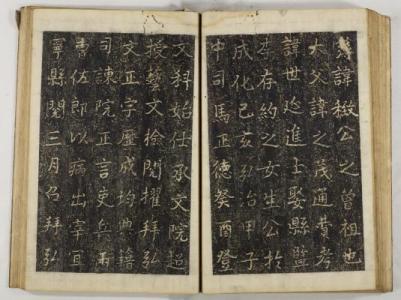 諱檄公之曾祖也
大父諱之茂通考
諱世延進士娶縣監
李存約之女生公於
成化己亥弘治甲子
中司馬正德癸酉登
文科始仕承文院
授藝文檢閱擢拜弘
文正字歷成均典籍
司諫院正言吏兵兩
曹佐郎以病出宰宜
寧縣閱三月召拜弘